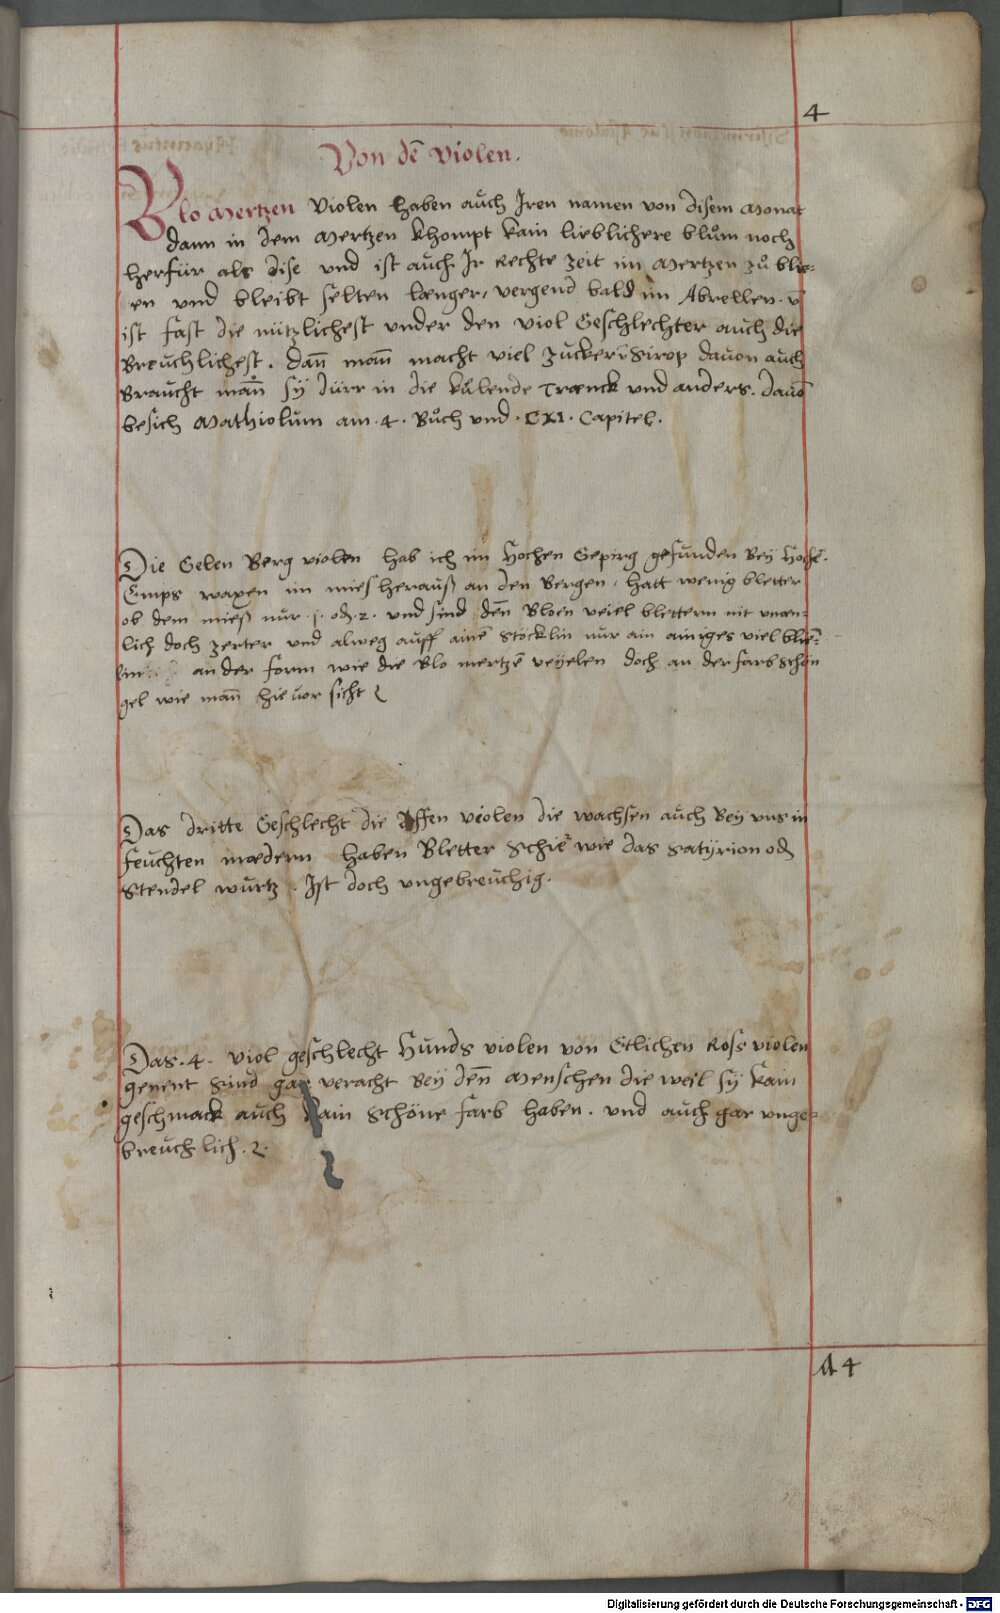 4
Von dē Violen.
Blo Mertzen Violen haben aůch Iren namen von disem Monat
dann in dem Mertzen khompt kain lieblichere blům noch
herfür als dise und ist aůch Ir Rechte zeit im Mertzen zů blie-
en und bleibt selten længer, vergend bald im Abrellen. v̄
ist fast die nützlichest under den viol Geschlechter auch die
Breuchlichest. dañ mañ macht viel zucker v̄ Sirop davon auch
Braucht mañ sÿ dürr in die kůlende Trænck und anders. davō
besich Mathiolum am .4. Bůch und .CXI. Capitel.
Die Gelen Berg violen hab ich im Hochen Gepirg gefunden Beÿ Hochē-
Emps waxen im mies herauß an den Bergen, hatt wenig bletter
ob dem mieß nur .j. od .2. und sind den Bloen veiel blettern nit unæn-
lich doch zerter und alweg auff ainē stöcklin nur ain ainiges viel blie-
lin an der form wie die Blo mertzē veÿelen doch an der farb schön
gel wie mañ hie vor sicht
Das dritte Geschlecht die Affen violen die wachsen aůch Beÿ uns in
feuchten mædern haben Bletter schiē wie das satÿrion od
Stendel wurtz. Ist doch ungebreuchig.
Das .4. viol geschlecht Hunds violen von Etlichen Ross violen
genent sind gar veracht Beÿ denn Menschen die weil sÿ kain
geschmack auch kain schöne farb haben. und auch gar unge-
breuchlich .2.
A 4
Digitalisierung gefördert durch die Deutsche Forschungsgemeinschaft - DFG